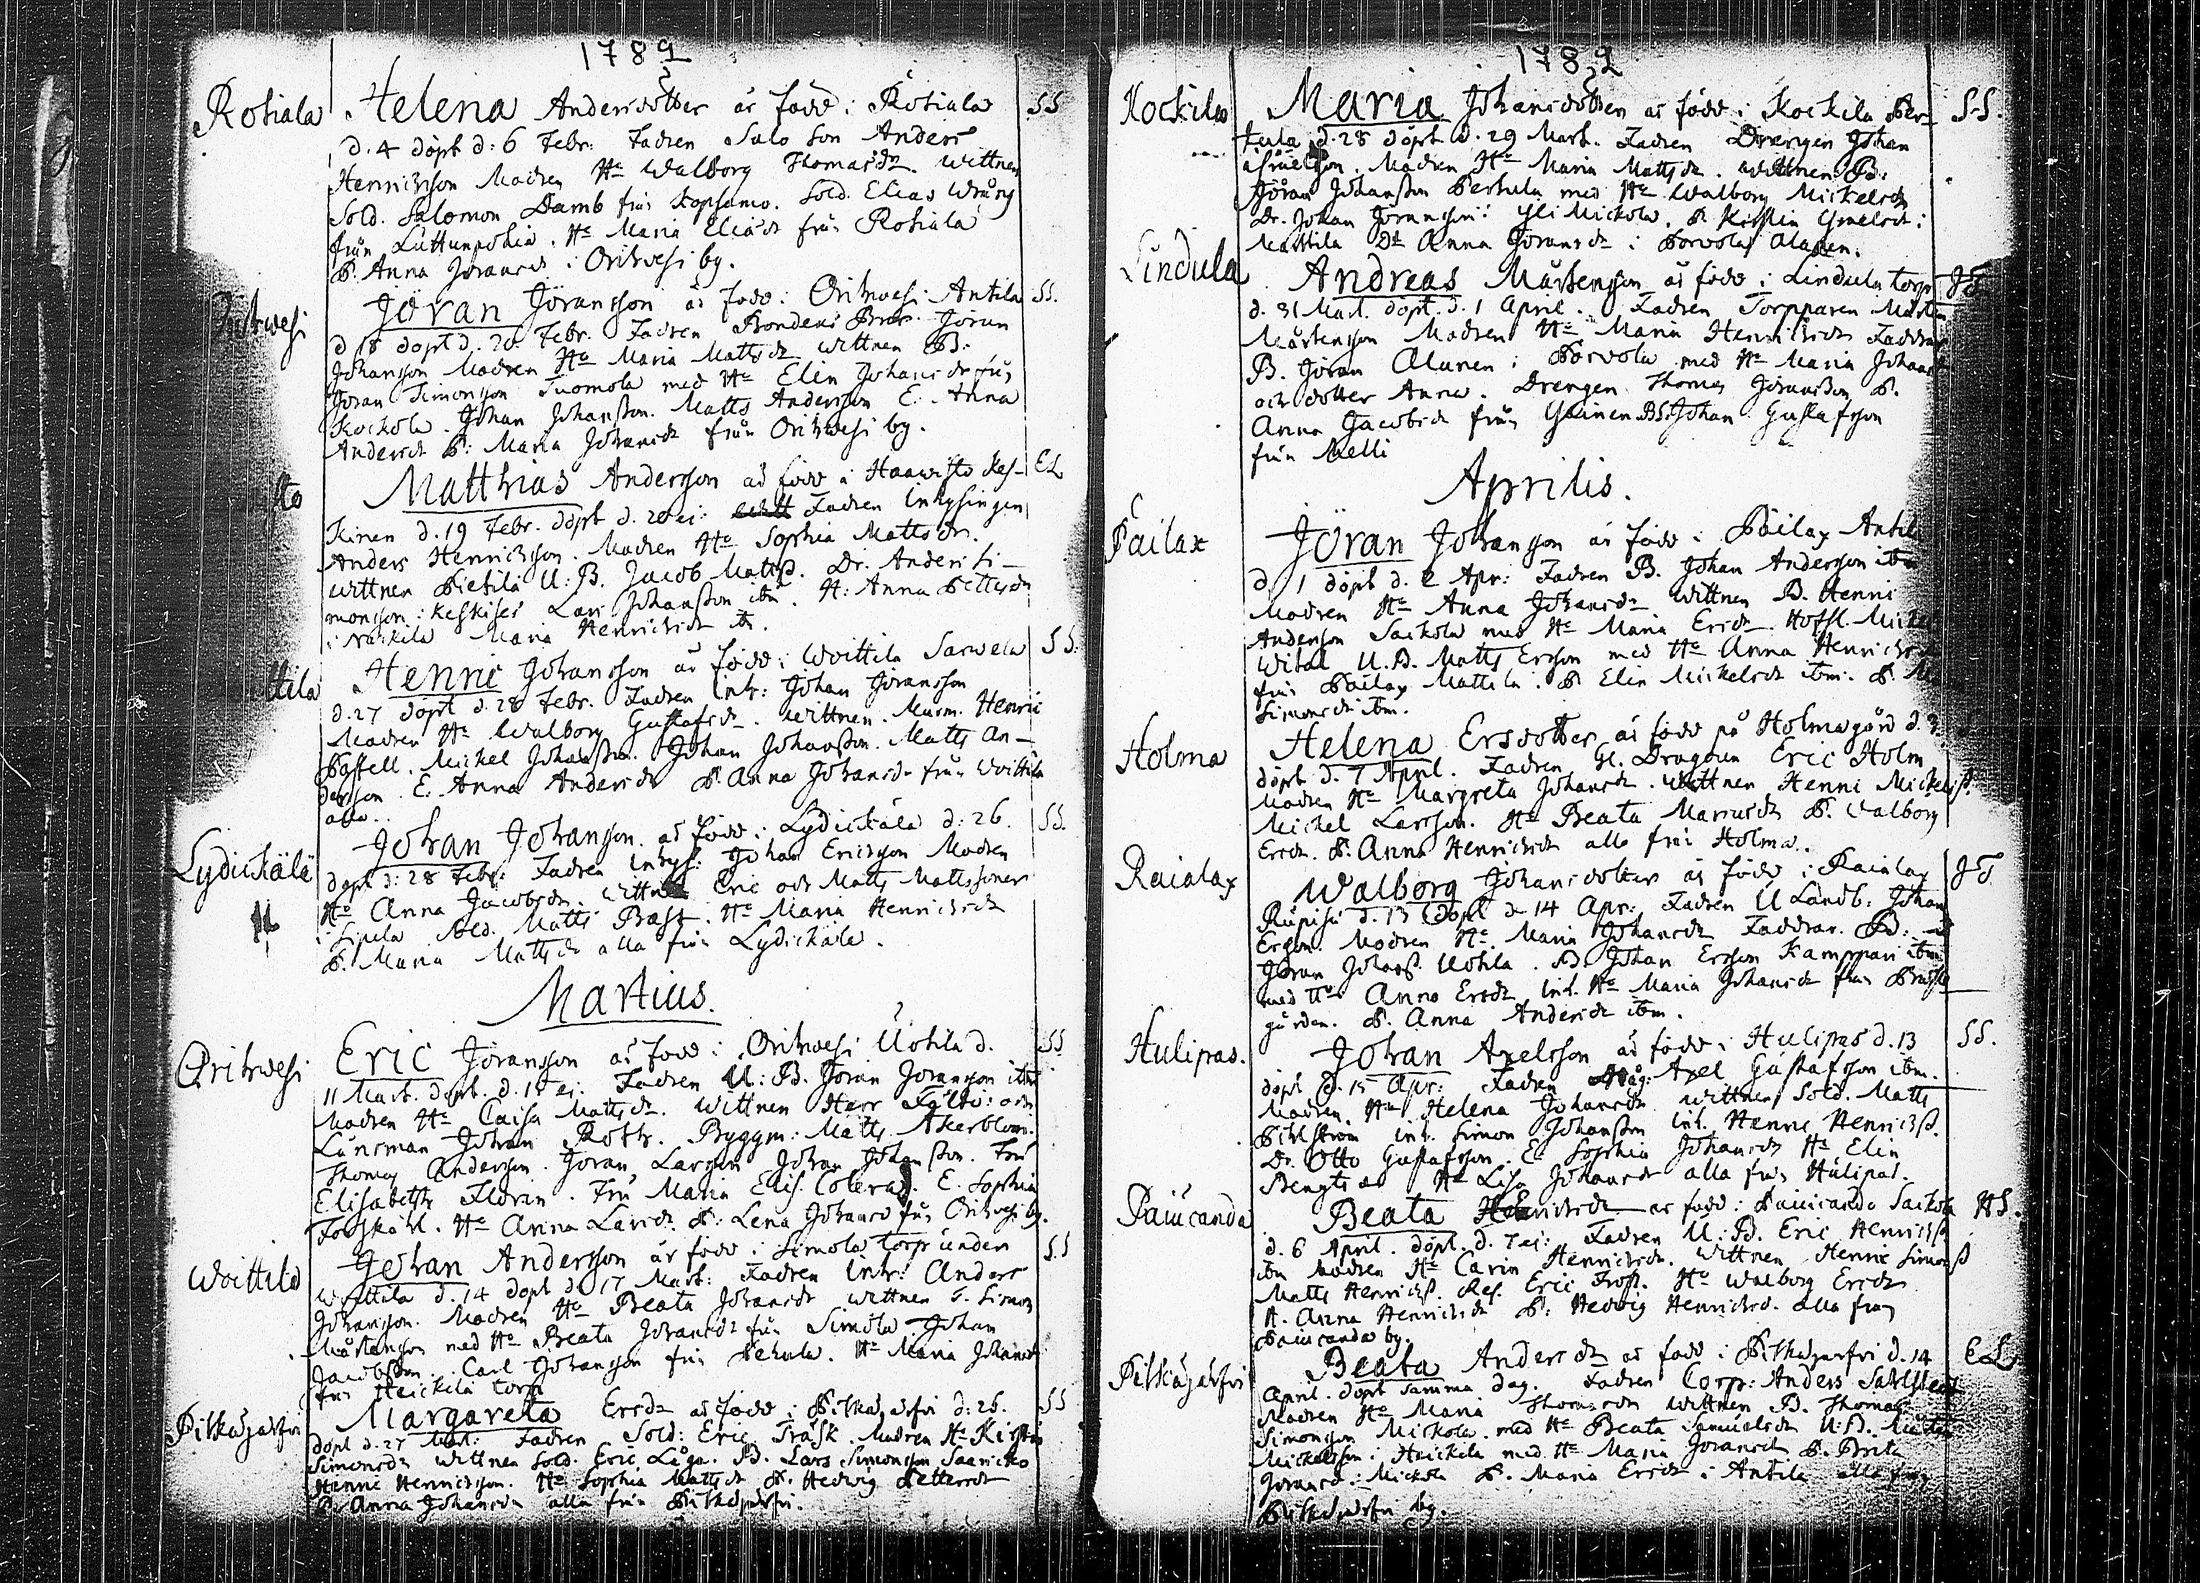 1782
Rotiala Helena Andersdotter är född i Rotiala SS
d. 4 döpt d: 6 Febr: Fadren Salo Son Anders
Henricsson Modren H:o Walborg Thomasdr. Wittnen
Sold. Salomon Damb från Sold. Elias
från H:o Maria Eliædr från Rotiala
P. Anna Göransdr i Orihvesi by.
Orihvesi Jöran Jöransson är född i Orihvesi Antila SS.
d 18 döpt d. 20 Febr. Fadren Bondens Bror Jöran
Johansson Modren H:o Maria Mattsdr Wittnen B:
Jöran Simonsson Tuomola med H:o Elin Johansdr från
Kockola. Johan Johansson. Matts Andersson E. Anna
Andersdr P: Maria Johansdr från Orihvesi by.
sto Matthias Andersson är född i Haavisto Kes- EL
kinen d. 19 Febr. döpt d. 20 ei: Fadren Inhysingen
Anders Henricsson. Modren H:o Sophia Mattsdr.
Wittnen Pietilä U: B. Jacob Mattss. Dr. Anders Si-
monsson i Keskises Lars Johansson ibm. H: Anna Pettersdr
i Maria Henricsdr ib.
ttila Henric Johansson är född i Woittila Sarvela SS:
d. 27 döpt d. 28 Febr. Fadren Inh: Johan Jöransson
Modren H:o Walborg Gustafsdr. Wittnen. Murm. Henric
Pastell. Mickel Johansson. Johan Johansson. Matts An-
dersson E. Anna Andersdr P. Anna Johansdr från Woittila
alla..
Lydickälä Johan Johansson är född i Lydickälä d: 26. SS.
döpt d: 28 Febr: Fadren Inhys: Johan Ericsson Modren
H:o Anna Jacobsdr. Wittnen Eric och Matts Mattssöner
i Sipilä Sold. Matts Bast. H:o Maria Henricsdr
P. Maria Mattsdr alla från Lydickälä.
Martius.
Orihvesi Eric Jöransson är född i Orihvesi Uotila d. SS
11 Mart. döpt. d. 15 ei. Fadren U: B. Jöran Jöransson ibm
Modren H:o Caisa Mattsdr. Wittnen Herr Fältv: och
Länsman Johan Roth. Byggm: Matts Åkerblom.
Thomas Andersson. Jöran Larsson Johan Johansson. Fru
Elisabeth Florin. Fru Maria Elis. Colerus. E. Sophia
Forskåhl. H:o Anna Larsdr. P: Lena Johansd från Orihvesi by.
Woittila Johan Andersson är född i Simola Torp under SS
Woittila d. 14 döpt d. 17 Mart: Fadren Inh: Anders
Johansson. Modren H:o Beata Johansdr Wittnen T. Simon
Mårtensson med H:o Beata Johansdr från Simola Johan
Jacobsson. Carl Johansson från H:o Maria Johansdr
från Heickilä torp
Pitkäjärfvi Margareta Ersdr är född i Pitkäjärfvi d: 26. SS
döpt d. 27 Mart: Fadren Sold: Eric Träsk. Modren H:o Kirstin
Simonsdr Wittnen Sold. Eric Låga. B. Lars Simonsson
Henric Henricsson. H:o Sophia Mattsdr P. Hedvig Pettersdr
P. Anna Johansdr alla från Pitkäjärfvi.
1782
Kockila Maria Johansdotter är född i Kockila Per- SS.
tula d. 28 döpt d. 29 Mart. Fadren Drengen Johan
Modren H:o Maria Mattsdr. Wittnen: B:
Jöran Johansson Pertula med H:o Walborg Mickelsdr
Dr. Johan Göransson i Yli Mickola. P. Kirstin
Mattila D:o Anna Göransdr i Porvola Alanen.
Lindula Andreas Mårtensson är född i Lindula torp JT
d. 31 Mart. döpt. d. 1 April. Fadren Torpparen Mårten
Mårtensson Modren H:o Maria Henricsdr Faddrar
B. Jöran Alanen i Porvola med H:o Maria Johansdr
och dotter Anna. Drengen Thomas Göransson P.
Anna Jacobsdr från Johan Gustafsson
från Melli
Aprilis.
Päilax Jöran Johansson är född i Päilax Antila
d. 1 döpt d. 2 Apr: Fadren B. Johan Andersson ibm
Modren H:o Anna Johansdr Wittnen B. Henric
Andersson Sackola med H:o Maria Ersdr Hofsl. Mickel
U. B. Matts Ersson med H:o Anna Henricsdr
från Päilax Mattila. P. Elin Mickelsdr ibm: P. Ma
Simonsdr ibm.
Holma Helena Ersdotter är född på Holma gård d. 3
döpt d. 7 April. Fadren Gl. Dragoun Eric Holm
Modren H:o Margreta Johansdr. Wittnen Henric Mickelss.
Michel Larsson. H:o Beata P. Walborg
Ersdr. P. Anna Henricsdr alla från Holma.
Raialax Walborg Johansdotter är född i Raialax JT
d. 13 döpt d. 14 Apr: Fadren U Landb: Johan
Ersson. Modren H:o Maria Johansdr Faddrar. B:
Jöran Johanss. Uotila. B. Johan Ersson Kamppari ibm
med H:o Anna Ersdr Inh. H:o Maria Johansdr från
gården. P. Anna Andersdr ibm.
Hulipas. Johan Axelsson är född i Hulipas d. 13 SS.
döpt d. 15 Apr: Fadren Axel Gustafsson ibm.
Modren H:o Helena Johansdr Wittnen Sold. Matts
Pihlström Inh. Simon Johansson Inh. Henric Henricss.
Dr. Otto Gustafsson. E. Sophia Johansdr H:o Elin
Bengtsdr H:o Lisa Johansdr alla från Hulipas.
Päiucanda Beata Henricsdr är född i Päiucanda Sackola HS.
d. 6 April. döpt d. 7 ei: Fadren U: B. Eric Henricss
ibm Modren H:o Carin Henricsdr. Wittnen Henric Simonss
Matts Henricss. Res. Eric Frost. H:o Walborg Ersdr
H. Anna Henricsdr P: Hedvig Henricsd. alla från
Päiucanda by.
Pitkäjärfvi Beata Andersdr är född i Pitkäjärfvi d. 14 EL
April. döpt samma dag. Fadren Corp: Anders Sahlsten
Modren H:o Maria Thomasdr Wittnen B. Thomas
Simonsson Mickola med H:o Beata Samuelsdr U: B.
Mickelsson i Heickilä med H:o Maria Göransdr P. Brita
Göransd: Mickola P. Maria Ersdr i Antila alla från
Pitkäjärfvi by.